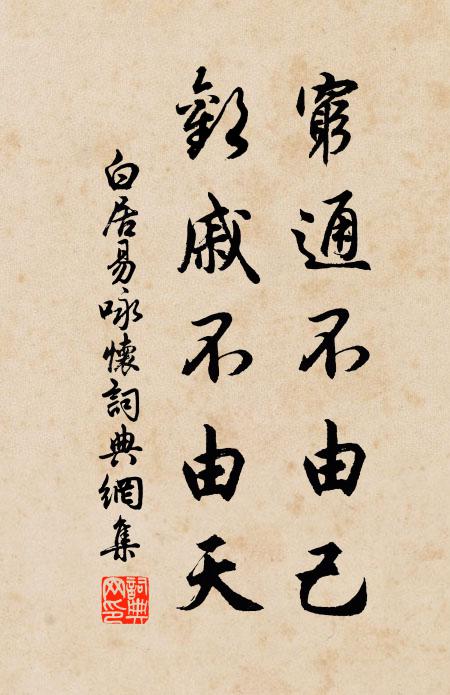 窮通不由己
歡戚不由天
白居易詠懷詞典網集
詞典網印